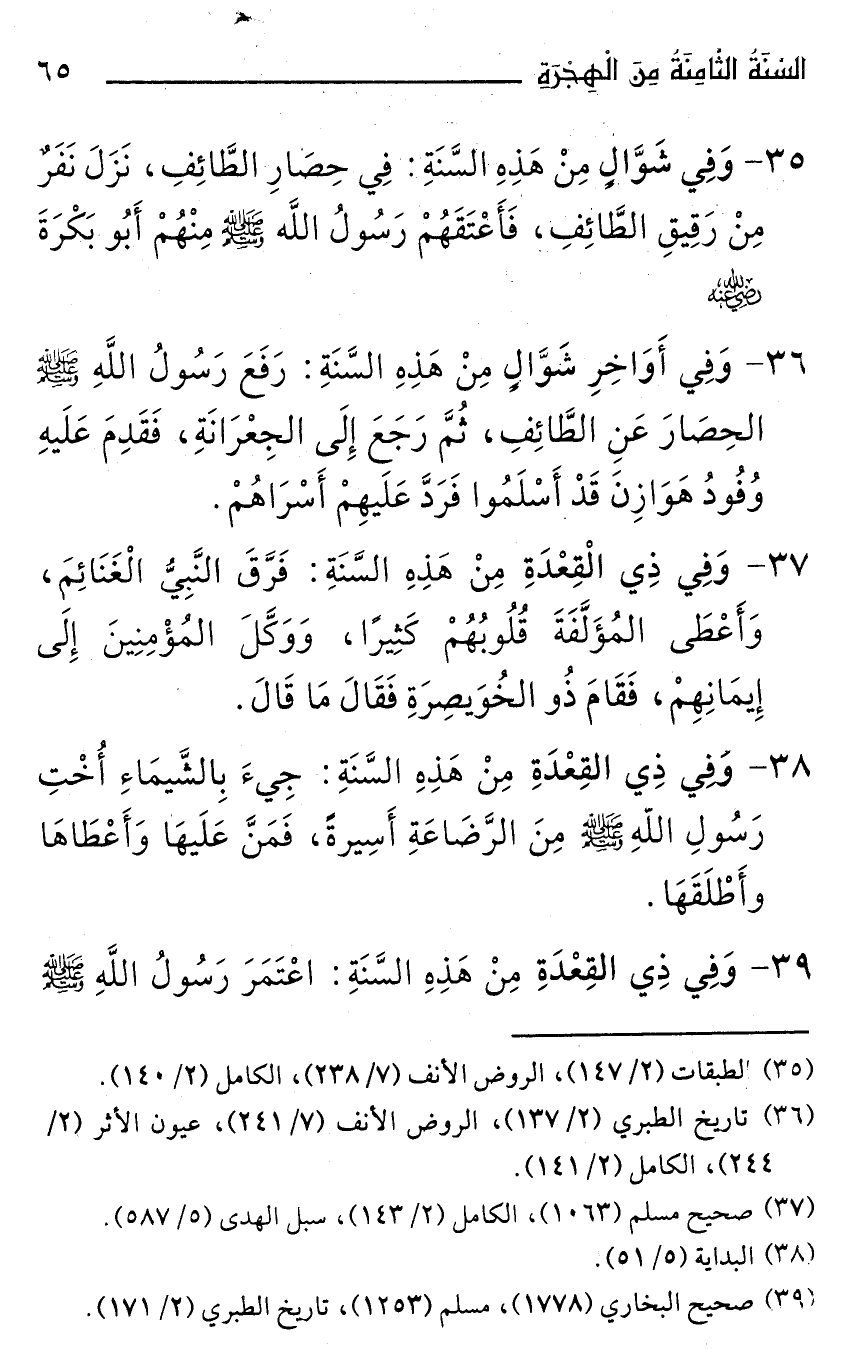 السَّنَةُ الثَّامِنَةُ مِنَ الْهِجْرَةِ ٦٥
٣٥- وَفِي شَوَّالٍ مِنْ هَذِهِ السَّنَةِ: فِي حِصَارِ الطَّائِفِ، نَزَلَ نَفَرٌ
مِنْ رَقِيقِ الطَّائِفِ، فَأَعْتَقَهُمْ رَسُولُ اللَّه ﷺ مِنْهُمْ أَبُو بَكْرَةَ
رضي الله عنه
٣٦- وَفِي أَوَاخِرِ شَوَّالٍ مِنْ هَذِهِ السَّنَةِ: رَفَعَ رَسُولُ اللَّهِ ﷺ
الحِصَارَ عَنِ الطَّائِفِ، ثُمَّ رَجَعَ إِلَى الجِعْرَانَةِ، فَقَدِمَ عَلَيهِ
وُفُودُ هَوَازِنَ قَدْ أَسْلَمُوا فَرَدَّ عَلَيهِمْ أَسْرَاهُمْ.
٣٧- وَفِي ذِي الْقِعْدَةِ مِنْ هَذِهِ السَّنَةِ: فَرَّقَ النَّبِيُّ الْغَنَائِمَ،
وَأَعْطَى المُؤَلَّفَةَ قُلُوبُهُمْ كَثِيرًا، وَوَكَّلَ المُؤْمِنِينَ إِلَى
إِيمَانِهِمْ، فَقَامَ ذُو الخُوَيصِرَةِ فَقَالَ مَا قَالَ.
٣٨- وَفِي ذِي القِعْدَةِ مِنْ هَذِهِ السَّنَةِ: جِيءَ بِالشَّيمَاءِ أُخْتِ
رَسُولِ اللَّهِ ﷺ مِنَ الرَّضَاعَةِ أَسِيرةً، فَمَنَّ عَلَيهَا وَأَعْطَاهَا
وأَطْلَقَهَا.
٣٩- وَفِي ذِي القِعْدَةِ مِنْ هَذِهِ السَّنَةِ: اعْتَمَرَ رَسُولُ اللَّهِ ﷺ
(٣٥) الطبقات (٢/ ١٤٧)، الروض الأنف (٧/ ٢٣٨)، الكامل (٢/ ١٤٠).
(٣٦) تاريخ الطبري (٢/ ١٣٧)، الروض الأنف (٧/ ٢٤١)، عيون الأثر (٢/
٢٤٤)، الكامل (٢/ ١٤١).
(٣٧) صحيح مسلم (١٠٦٣)، الكامل (٢/ ١٤٣)، سبل الهدى (٥/ ٥٨٧).
(٣٨) البداية (٥/ ٥١).
(٣٩) صحيح البخاري (١٧٧٨)، مسلم (١٢٥٣)، تاريخ الطبري (٢/ ١٧١).